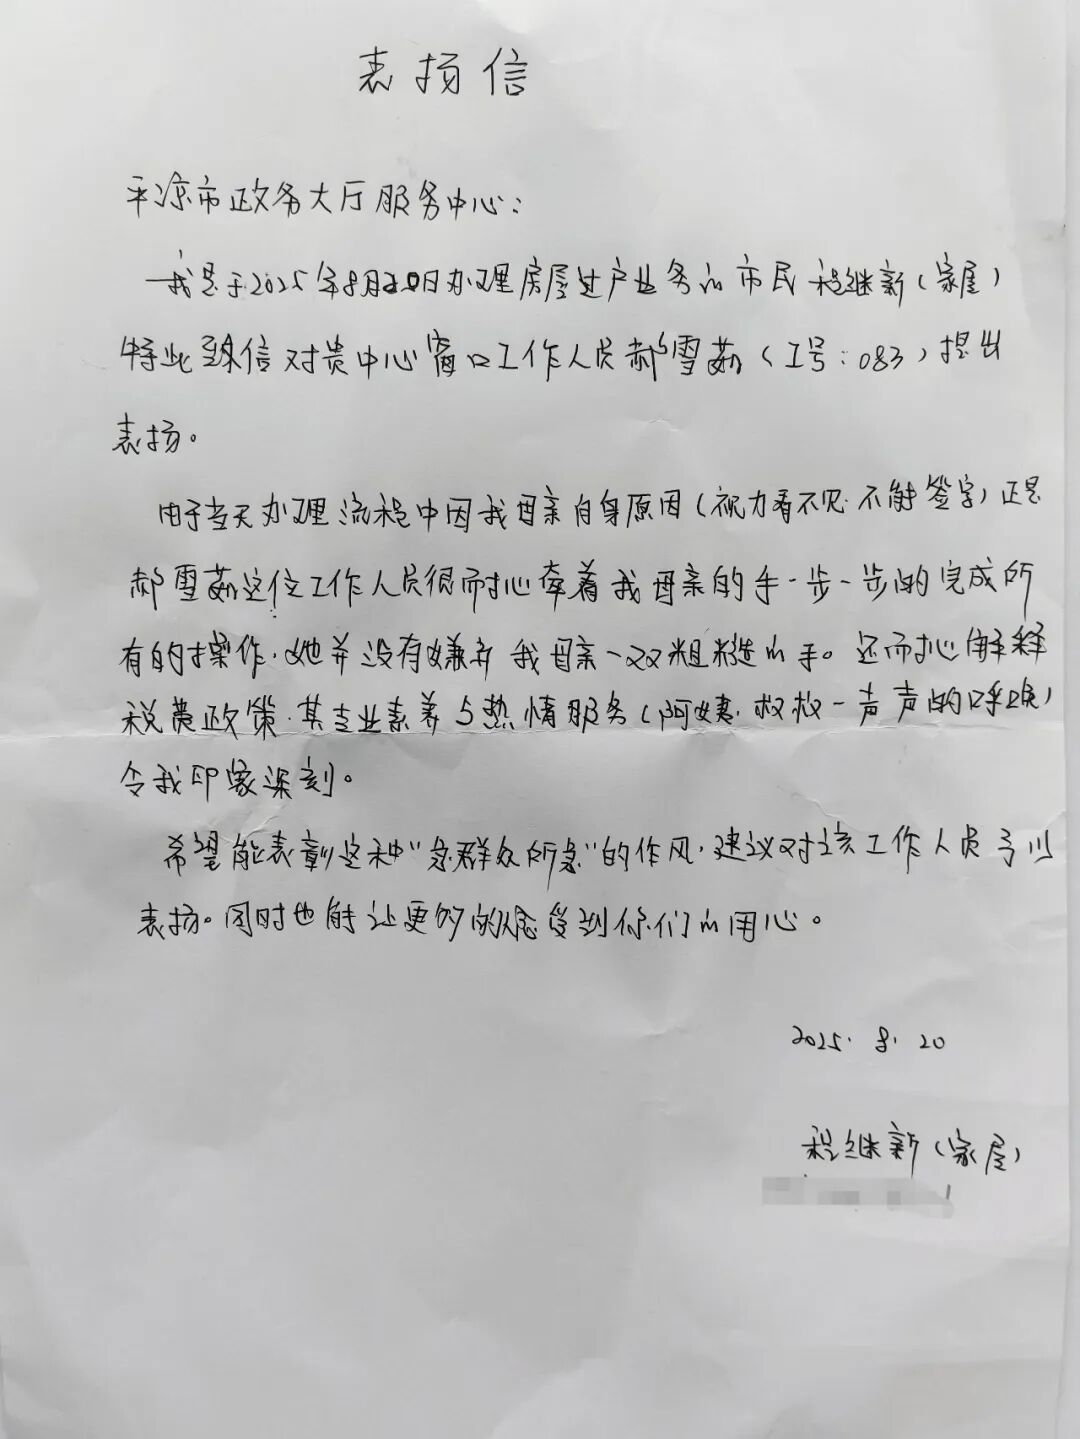 表扬信
平凉市政务大厅服务中心：
我是于2025年8月20日办理房屋过户业务的市民程继新（家属）
特此致信对贵中心窗口工作人员郝雪茹（工号：083）提出
表扬。
由于当天办理流程中因我母亲自身原因（视力看不见·不能签字）正是
郝雪茹这位工作人员很耐心牵着我母亲的手一步一步的完成所
有的操作，她并没有嫌弃我母亲一双粗糙的手。还耐心解释
税费政策，其专业素养与热情服务（阿姨，叔叔一声声的呼唤）
令我印象深刻。
希望能表彰这种“急群众所急”的作风，建议对该工作人员予以
表扬。同时也能让更多的人感受到你们的用心。
2025. 8. 20
程继新（家属）